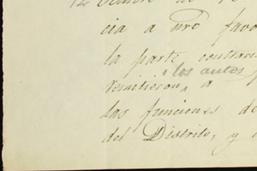 cia a nro favo
la parte contrar
los autos,
remitieron, a
las funciones de
del Distrito, y